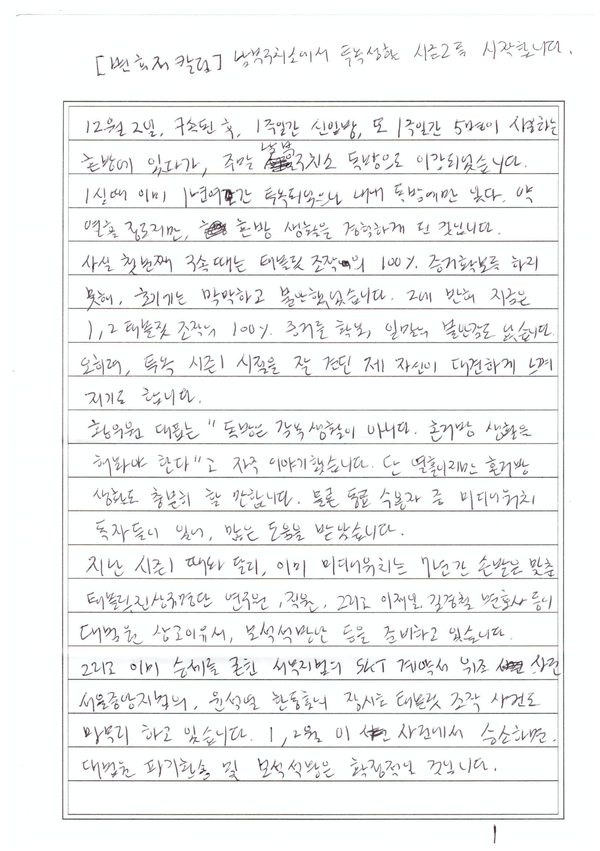 [변희재칼럼] 남부구치소에서 투옥생활 시즌2를 시작합니다.
12월 2일, 구속된 후, 1주일간 신입방, 또 1주일간 5명이 사용하는
혼방에 있다가, 주말 남부구치소 독방으로 이감되었습니다.
1심때 이미 1년여간 투옥되었으나 내내 독방에만 있다. 약
열흘 정도지만, 혼방 생활을 경험하게 된 것입니다.
사실 첫번째 구속때는 태블릿 조작의 100% 증거확보를 하지
못해, 초기에는 막막하고 불안했었습니다. 그에 반해 지금은
1,2 태블릿 조작의 100% 증거를 확보, 일말의 불안감도 없습니다.
오히려, 투옥 시즌1 시절을 잘 견딘 제 자신이 대견하게 느껴
지기도 합니다.
황의원 대표는 "독방은 감옥생활이 아니다. 혼거방 생활을
해봐야 한다"고 자주 이야기했습니다. 단 열흘이지만 혼거방
생활도 충분히 할 만합니다. 물론 동료 수용자 중 미디어워치
독자들이 있어, 많은 도움을 받았습니다.
지난 시즌1 때와 달리, 이미 미디어워치는 7년간 손발을 맞춘
태블릿진상규명단 연구원, 직원, 그리고 이제일, 길경철 변호사 등이
대법원 상고이유서, 보석석방난 등을 준비하고 있습니다.
그리고 이미 승세를 굳힌 서부지법의 SKT 계약서 위조 사건
서울중앙지법의, 윤석열 한동훈의 장시호 태블릿 조작 사건도
마무리 하고 있습니다. 1,2월 이 사건에서 승소하면,
대법원 파기환송 및 보석석방은 확정적일 것입니다.
1